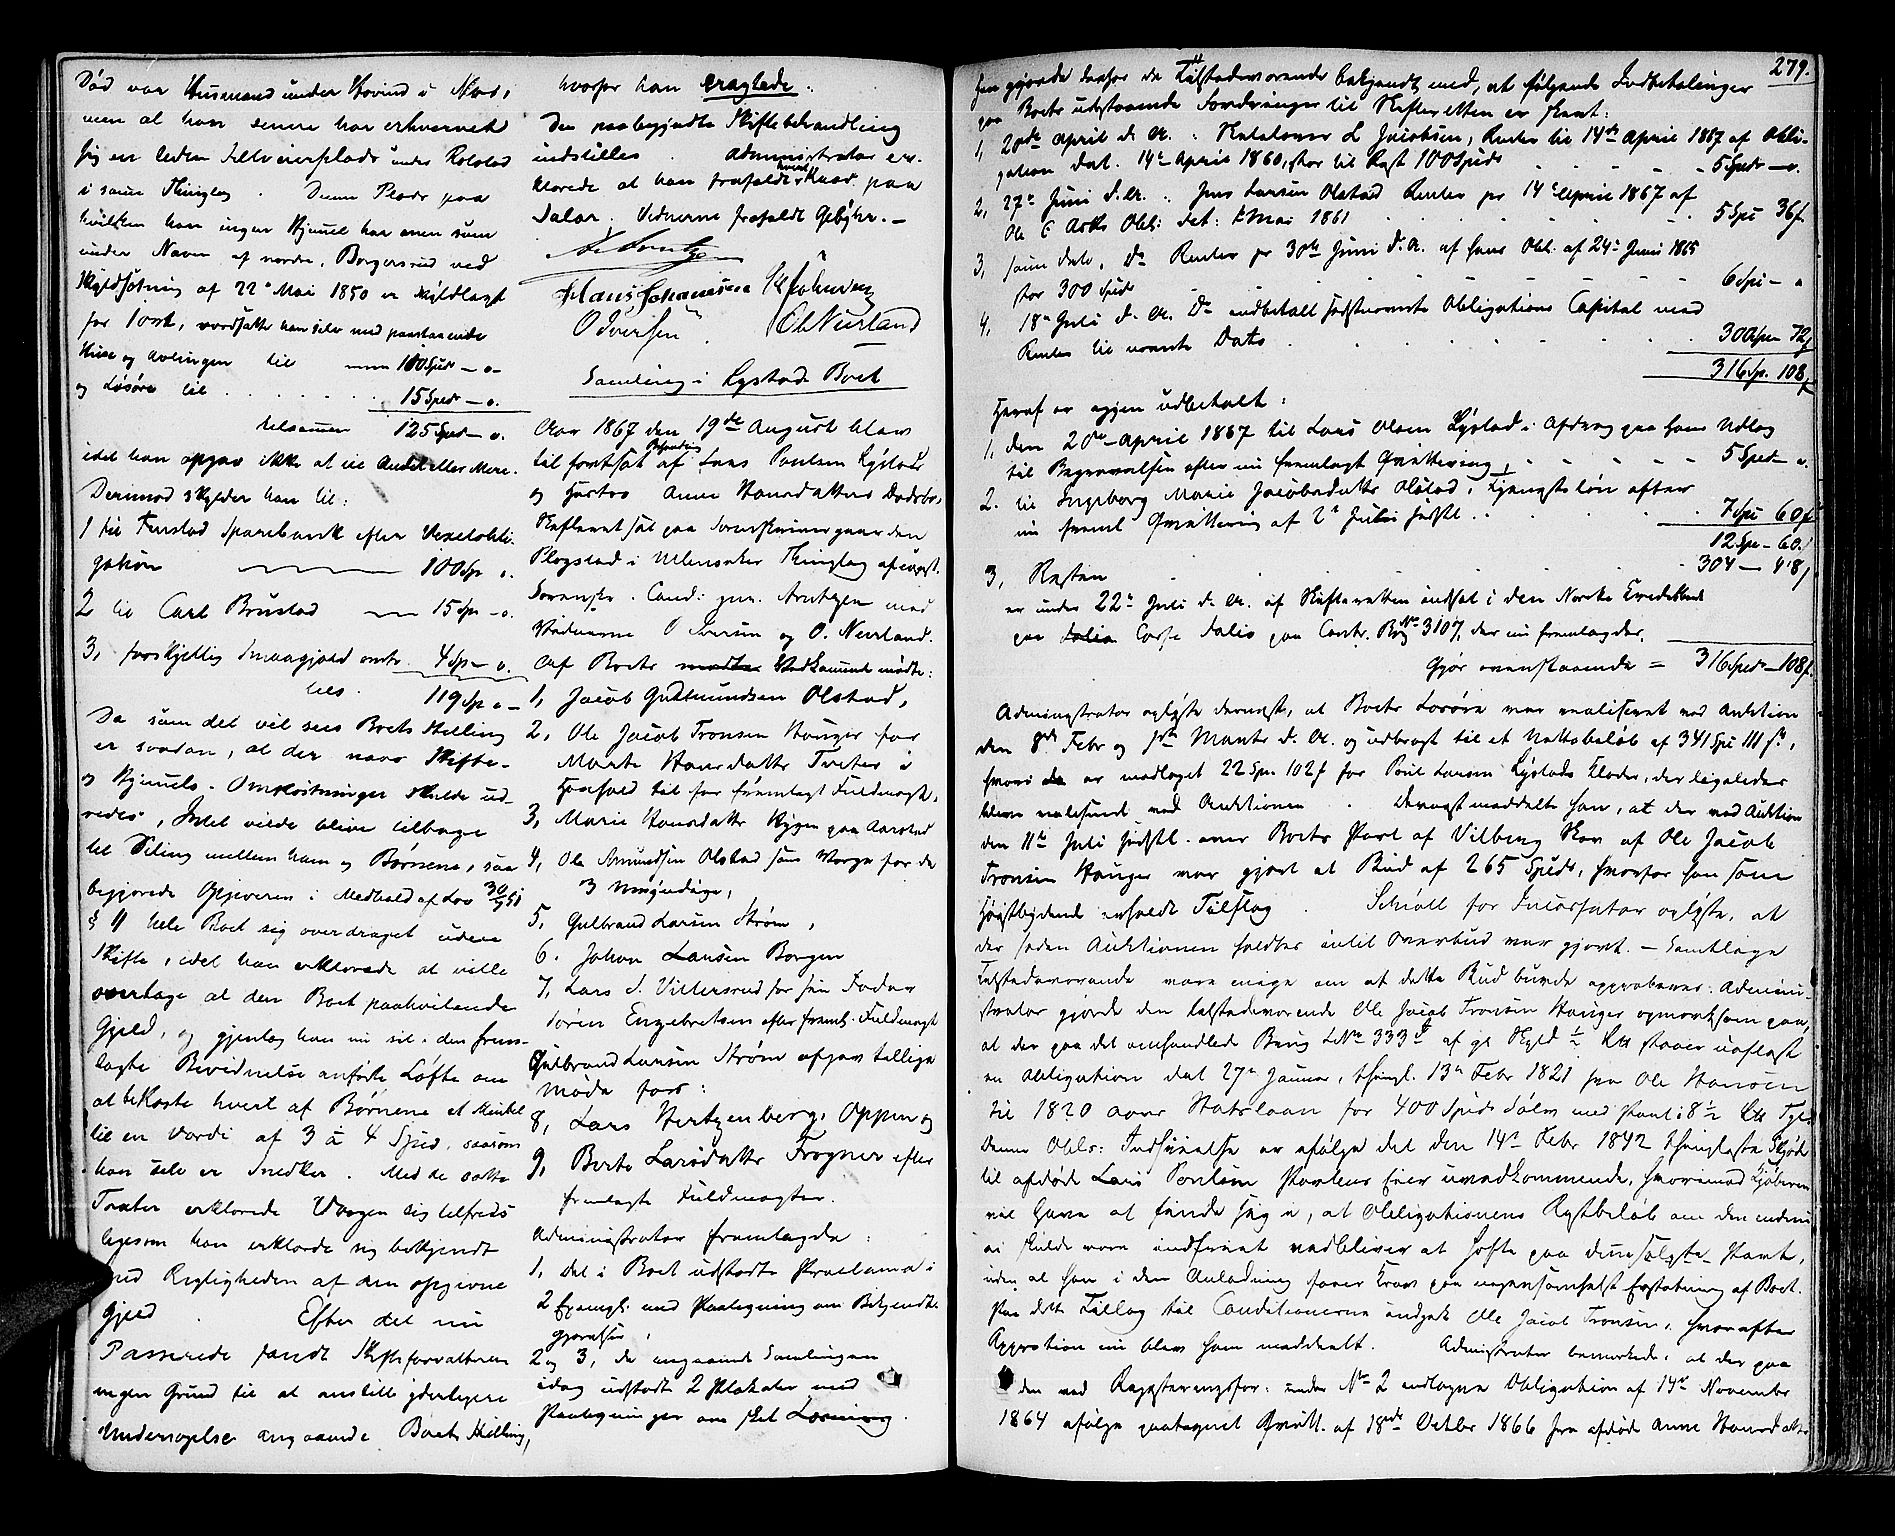 Död var Husmand under Hovind i Næs,
men at han senere har erhvervet
sig en liden Selveierplads under Rolstad
i samme Thinglag. Denne Plads paa
hvilken han ingen Hjemmel har men som
under Navn af nordre Borgersrud ved
Skyldsætning af 22de Mai 1850 er skyldlagt
for 1 ort, værdsatte han selv med paastaaende
Huse og Avlingen til 110 Spd - o -
og Løsøre til 15 Spd - o.
tilsammen 125 Spd - o.
idet han opgav ikke at eie Andet eller Mere.
Derimod skylder han til:
1 til Sparebank efter Vexelobli-
gation 100 Sp o.
2 til Carl Brustad 15 Sp - o.
3, forskjellig Smaagjæld omtr. 4 Sp - o.
tils. 119 Sp o -
Da som det vil sees Boets Stilling
er saadan, at der naar Skifte-
og Hjemmels-Omkostninger skulde ud-
redes, Intet vilde blive tilbage
til Deling mellem ham og Børnene, saa
begjærede Opgiveren i Medhold af Lov 30/7 51
§ 11 hele Boet sig overdraget uden
Skifte, idet han erklærede at ville
overtage al den Boet paahvilende
Gjæld, og gjentog han nu sit i den frem-
lagte Bevidnelse anførte Løfte om
at bekoste hvert af Børnene et
til en Værdi af 3 à 4 Spd, saasom
han selv er Snedker. Med de satte
Taxter erklærede Værgen sig tilfreds
ligesom han erklærede sig bekjendt
med Rigtigheden af den opgivne
Gjæld. Efter det nu
Passerede fandt Skifteforvalteren
ingen Grund til at anstille yderligere
Undersøgelse angaaende Boets Stilling,
hvorfor han eragtede:
Den paabegyndte Skiftebehandling
indstilles. Administrator er-
klærede at han frafaldt med Kaar paa
Salær. Vidnerne frafaldt Gebyhr. -
Hans Johannesen
O Iversen O Nerland
Samling i Kystads Boet
Aar 1867 den 19de August blev
til fortsat Behandling af Lars Paulsen Kystads
og Hustru Anne Hansdatters Dødsbo,
Skifteret sat paa Sorenskrivergaarden
Plogstad i Ullensaker Thinglag af const.
Sorenskr. Cand: jur. Arntzen med
Vidnerne O Iversen og O. Nerland.
Af Boets Vedkommende mødte:
1, Jacob Gudmundsen Olstad,
2, Ole Jacob Tronsen Hauger for
Marte Hansdatter Tveter i
Henhold til før fremlagt Fuldmagt,
3, Marie Hansdatter Nygen paa Aarstad
4, Ole Amundsen Olstad som Værge for de
3 Umyndige,
5, Gulbrand Larsen Strøm,
6. Johan Larsen Borgen
7, Lars S. Villersrud for sin Fader
Søren Engebretsen efter freml. Fuldmagt
Gulbrand Larsen Strøm afgav tillige
Møde for:
8, Lars Hertzenberg, Oppen og
9, Berte Larsdatter Frogner efter
fremlagte Fuldmagter.
Administrator fremlagde:
1, det i Boet udstedte Proclama i
2 Exempl. med Paategning om Bekjendt-
gjørelse,
2 og 3, de angaaende Samlingen
idag udstedte 2 Plakater med
Paategninger om skeet Læsning.
279.
Han gjorde derfor de Tilstedeværende bekjendt med, at følgende Indbetalinger
paa Boets udestaaende Fordringer til Skifteretten er skeet:
1, 20de April d. A. : L Jacobsen, Renter til 14de April 1867 af Obli-
gation dat. 14de April 1860, stor til Rest 100 Spd 5 Spd - o.
2, 27de Juni d. A. Jens Larsen Olstad Renter pr 14de April 1867 af
Ole E Obl: dat: Mai 1861 5 Spd 36 s.
3, samme Dato, Do Renter pr 30te Juni d. A. af hans Obl. af 24de Juni 1865
stor 300 Spd 6 Spd - o
4, 18de Juli d. A. Do indbetalt sidstnævnte Obligations Capital med
Renter til nævnte Dato 300 Spd 72 s
316 Sp. 108 s
Heraf er igjen udbetalt:
1, den 20de April 1867 til Lars Olsen Kystad i Afdrag paa hans Udlæg
til Begravelsen efter nu fremlagt Qvittering, 5 Spd - o.
2. til Ingeborg Marie Jacobsdatter Olstad i Tjenesteløn efter
nu freml Qvittering af 2de Juli sidstl. 7 Spd 60 s
12 Sp - 60.
3, Resten 304 - 48 s
er under 22de Juli d. A. af Skifteretten indsat i den Norske Creditbank
paa Folio paa Contr. Bog No 3107, der nu fremlægges,
Gjør ovenstaaende = 316 Spd - 108 s.
Administrator oplyste dernæst, at Boets Løsøre var realiseret ved Auktion
den 8de Febr og 1ste Marts d. A. og udbragt til et Nettobeløb af 341 Spd 111 s,
hvori er medtaget 22 Spd 102 s for Poul Larsen Kystads Klæder, der ligeledes
bleve realiserede ved Auktionen. Dernæst meddelte han, at der ved Auktion
den 11te Juli sidstl. over Boets Part af Vilberg Skov af Ole Jacob
Tronsen Hauger var gjort et Bud af 265 Spd, hvorfor han som
Høistbydende erholdt Tilslag. Schiøll for oplyste, at
der siden Auktionen holdtes intet Overbud var gjort. - Samtlige
Tilstedeværende vare enige om at dette Bud burde approberes. Admini-
strator gjorde den tilstedeværende Ole Jacob Tronsen Hauger opmærksom paa,
at der paa det omhandlede Brug L.No 333 af gl Skyld staaer uaflæst
en Obligation dat 27de Januar, thingl. 13de Febr 1821 fra Ole Hansen
til 1820 Aars Statslaan for 400 Spd Sølv med Pant i 8 1/2
Denne Obls: Indfrielse er ifølge det den 14de Febr 1842 thinglæste Skjøde
til afdøde Lars Poulsen Partens Eier uvedkommende, hvorimod Kjøberen
vil have at finde sig i, at Obligationens Restbeløb om den endnu
ei skulde være indfriet vedbliver at hefte paa den solgte Part,
uden at han i den Anledning faaer Krav paa nogensomhelst Erstatning af Boet.
Paa dette Tillæg til Conditionerne indgik Ole Jacob Tronsen, hvorefter
Approbation nu blev ham meddelt. Administrator bemærkede, at der paa
den ved Registreringsfor. under No 2 indtagne Obligation af 14de November
1864 ifølge paategnet Qvitt. af 18de Octbr 1866 fra afdøde Anne Hansdatter